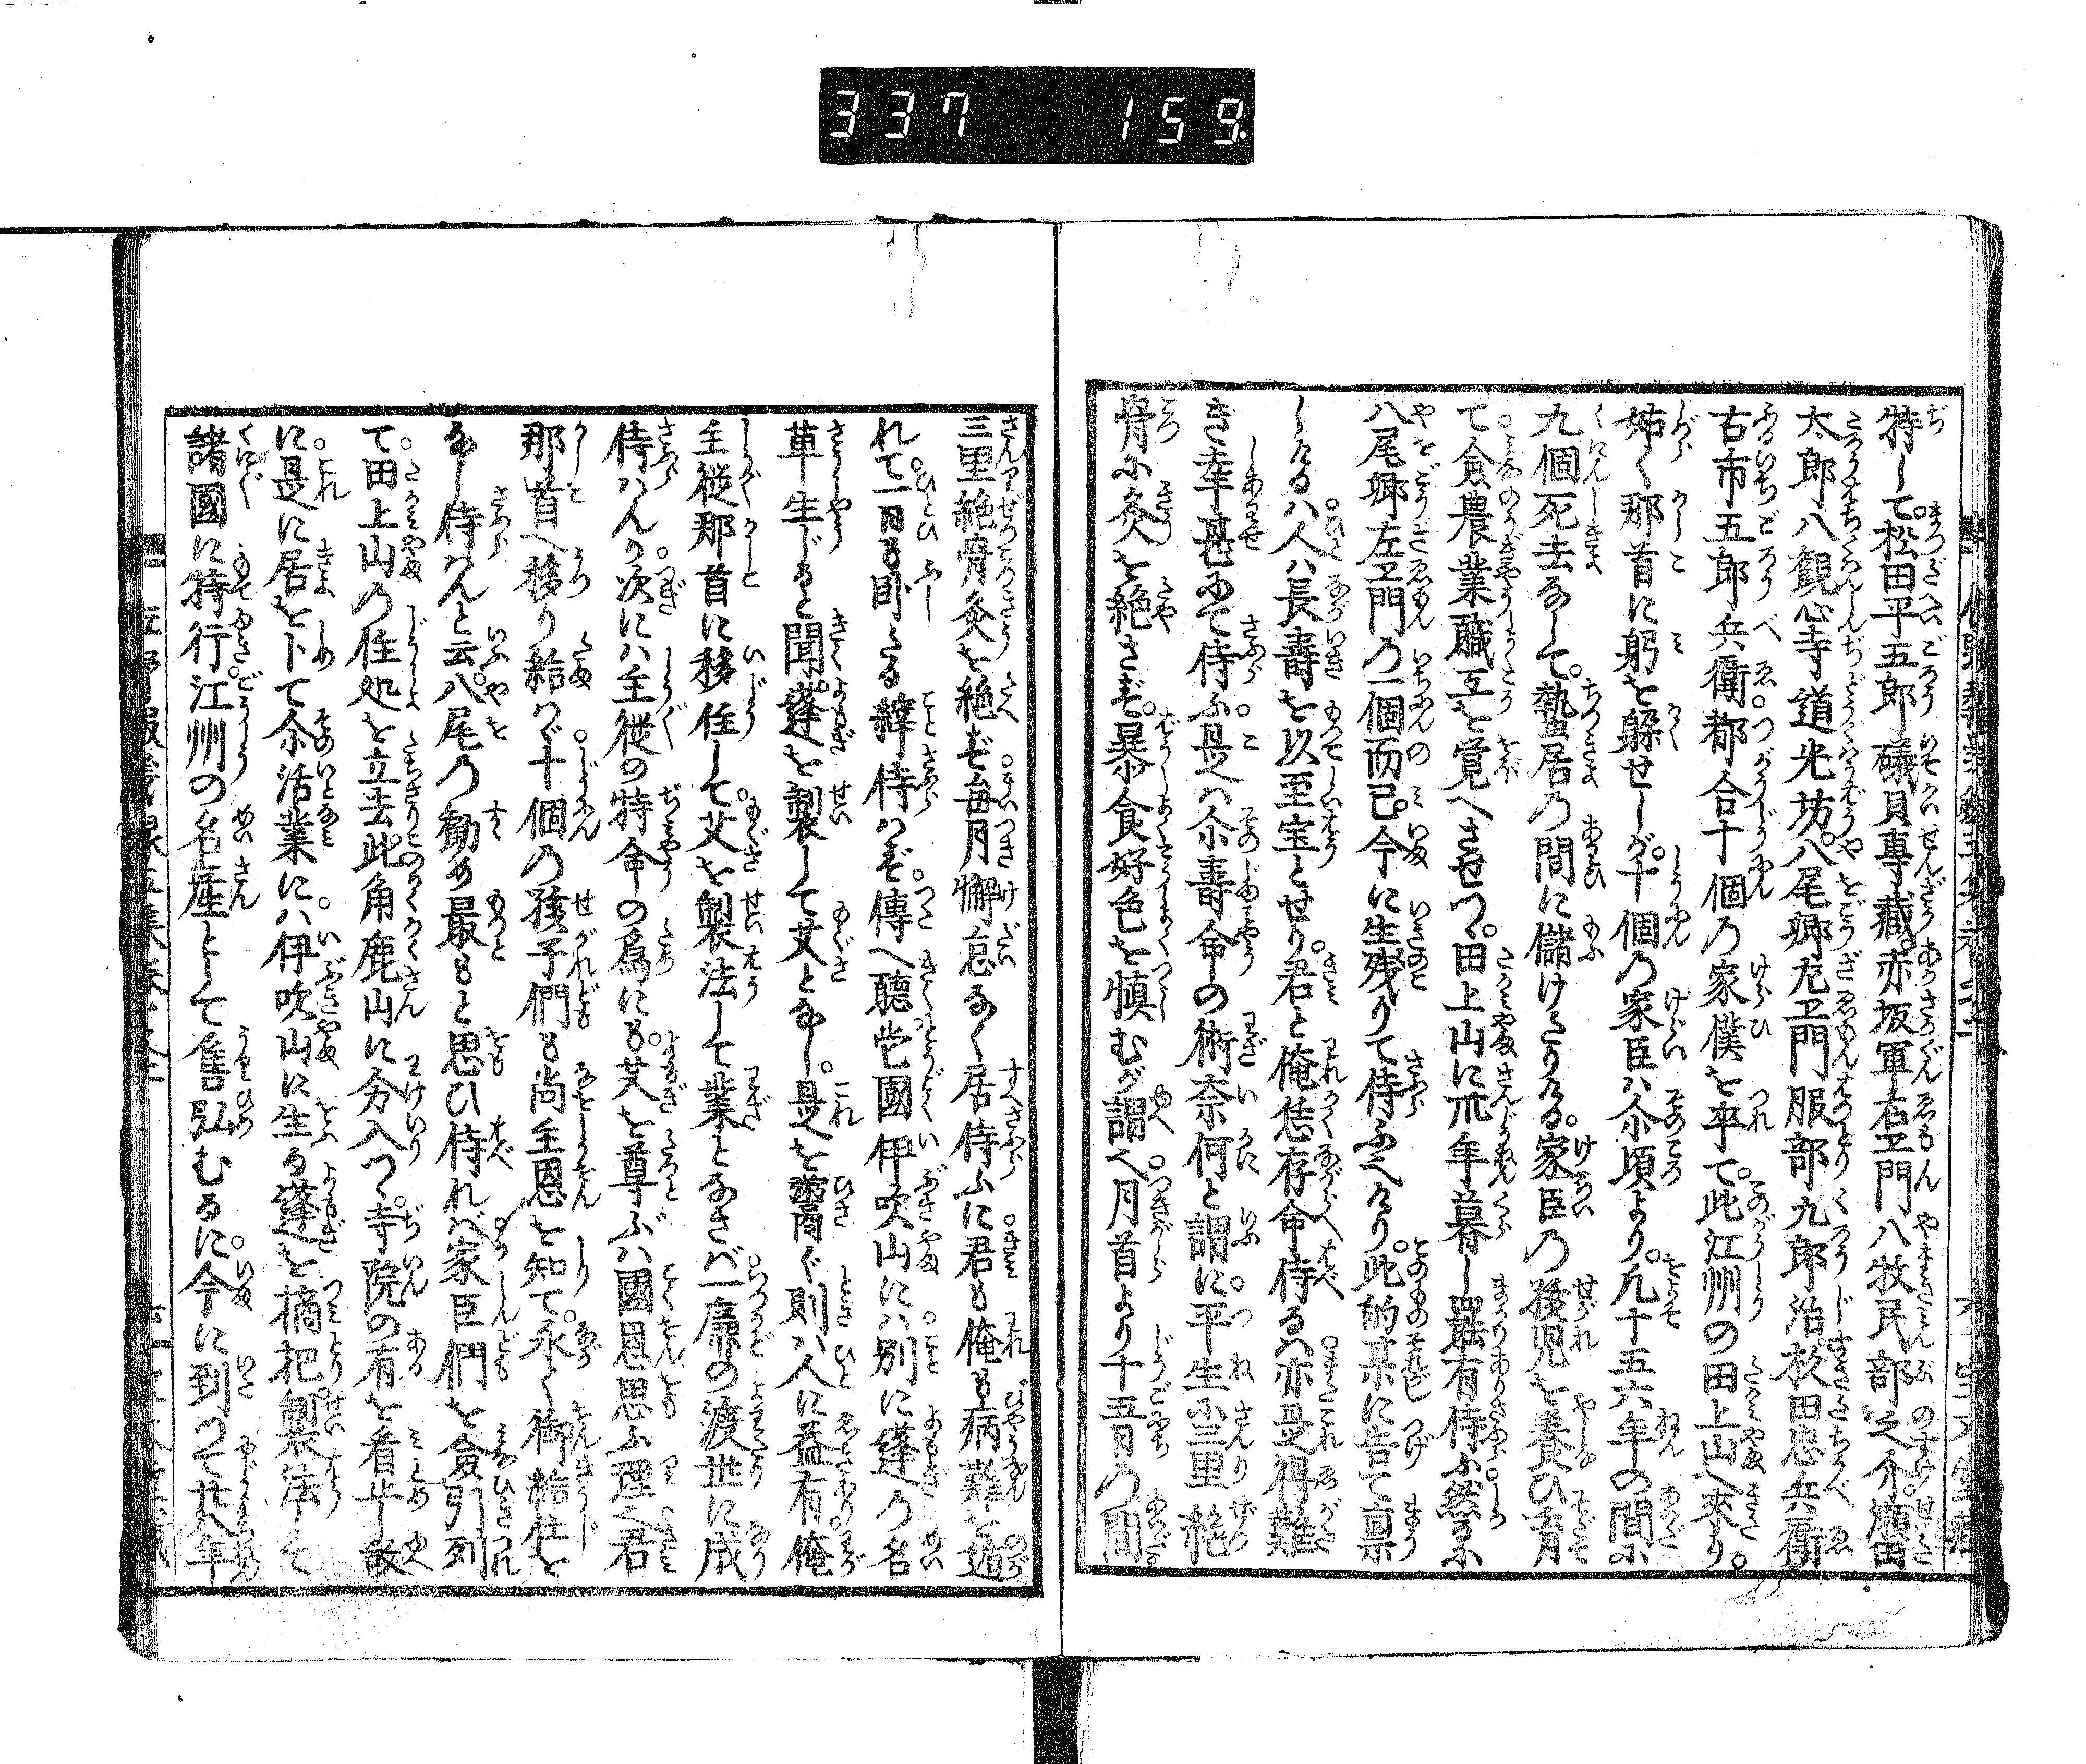 337 159
特して。松田平五郎礒貝專藏。赤坂軍右エ門八牧民部之介。瀬田
太郎八觀心寺道光坊。八尾卿左エ門服部九郎治杉田忠兵衛
古市五郎兵衛都合十個の家僕を卒て。此江州の田上山へ来り。
姑く那首に躬を躱せしが。十個の家臣ハ尓頃より。凡十五六年の間に
九個死去なして。蟄居の間に儲けたりける。家臣の孩児を養ひ育
て。僉農業職工を覚へさせつ。田上山に卅年暮し羅有侍ふ。然るに
八尾卿左エ門の一個而已。今に生残りて侍ふへけり。此的某に告て禀
しけるハ。人ハ長壽を以至宝とせり。君と俺恁存命侍るハ。亦是得難
き幸甚にて侍ふ。是ハ尓壽命の術奈何と謂に。平生に三里絶
骨に灸を絶さず。暴食好色を慎むが謂へ。月首より十五日の間
三里絶骨灸を絶ず。毎月懈怠なく居侍ふに。君も俺も病難を遁
れて。一日も臥たる縡侍はず。傳へ聽。當國伊吹山にハ。別に蓬の名
草生ずると聞。蓬を製して艾となし。是を鬻ぐ則ハ人に益有。俺
主従那首に移住して。艾を製法して業となさバ。一廉の渡世に成
侍はんか。次にハ主従の持命の為にも。艾を尊ぶハ國恩思ふ理。君
那首へ移り給はゞ。十個の孩子們も尚主恩を知て。永く御給仕を
なし侍はんと云。八尾の勧め最もと思ひ侍れバ。家臣們を僉引列
て。田上山の住処を立去。此角鹿山に分入つ。寺院の有を看止。故
に是に居を卜て。尓活業にハ。伊吹山に生る蓬を摘把。製法して
諸國に持行。江州の名産として售弘むるに。今に到つて廿八年